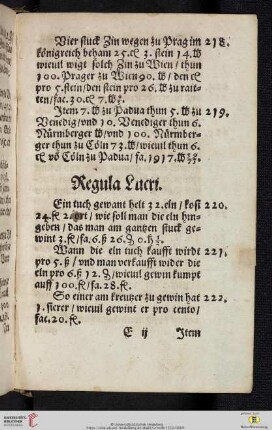 Vier stuck Zin wegen zu Prag im 218.
königreich beham 25.
wieuil wigt solch Zin zu Wien / thun
100. Prager zu Wien 90.
pro 5. stein / den stein pro 26.
ten / fac. 30.
Item 7. zu Padua thun 5. zu 219.
Venedig / vnd 10. Venediger thun 6.
Nürmberger vnd 100. Nürnber-
ger thun zu Cöln 73. wieuil thun 6.
Cöln zu Padua / fa. 1917.
Regula Lucri.
Ein tuch gewant helt 32. eln / kost 220.
24. fl. 2. ort / wie soll man die eln hyn-
geben / das man am gantzen stuck ge-
wint 3. fl / fa. 6. ß 26. 0. h
Wann die eln tuch kaufft wirdt 221.
pro 5. ß / vnd man verkaufft wider die
eln pro 6. ß 12. / wieuil gewin kumpt
auff 100. fl / fa. 28. fl.
So einer am kreutzer zu gewin hat 222.
1. fierer / wieuil gewint er pro cento /
fac. 20. fl.
E ij Item